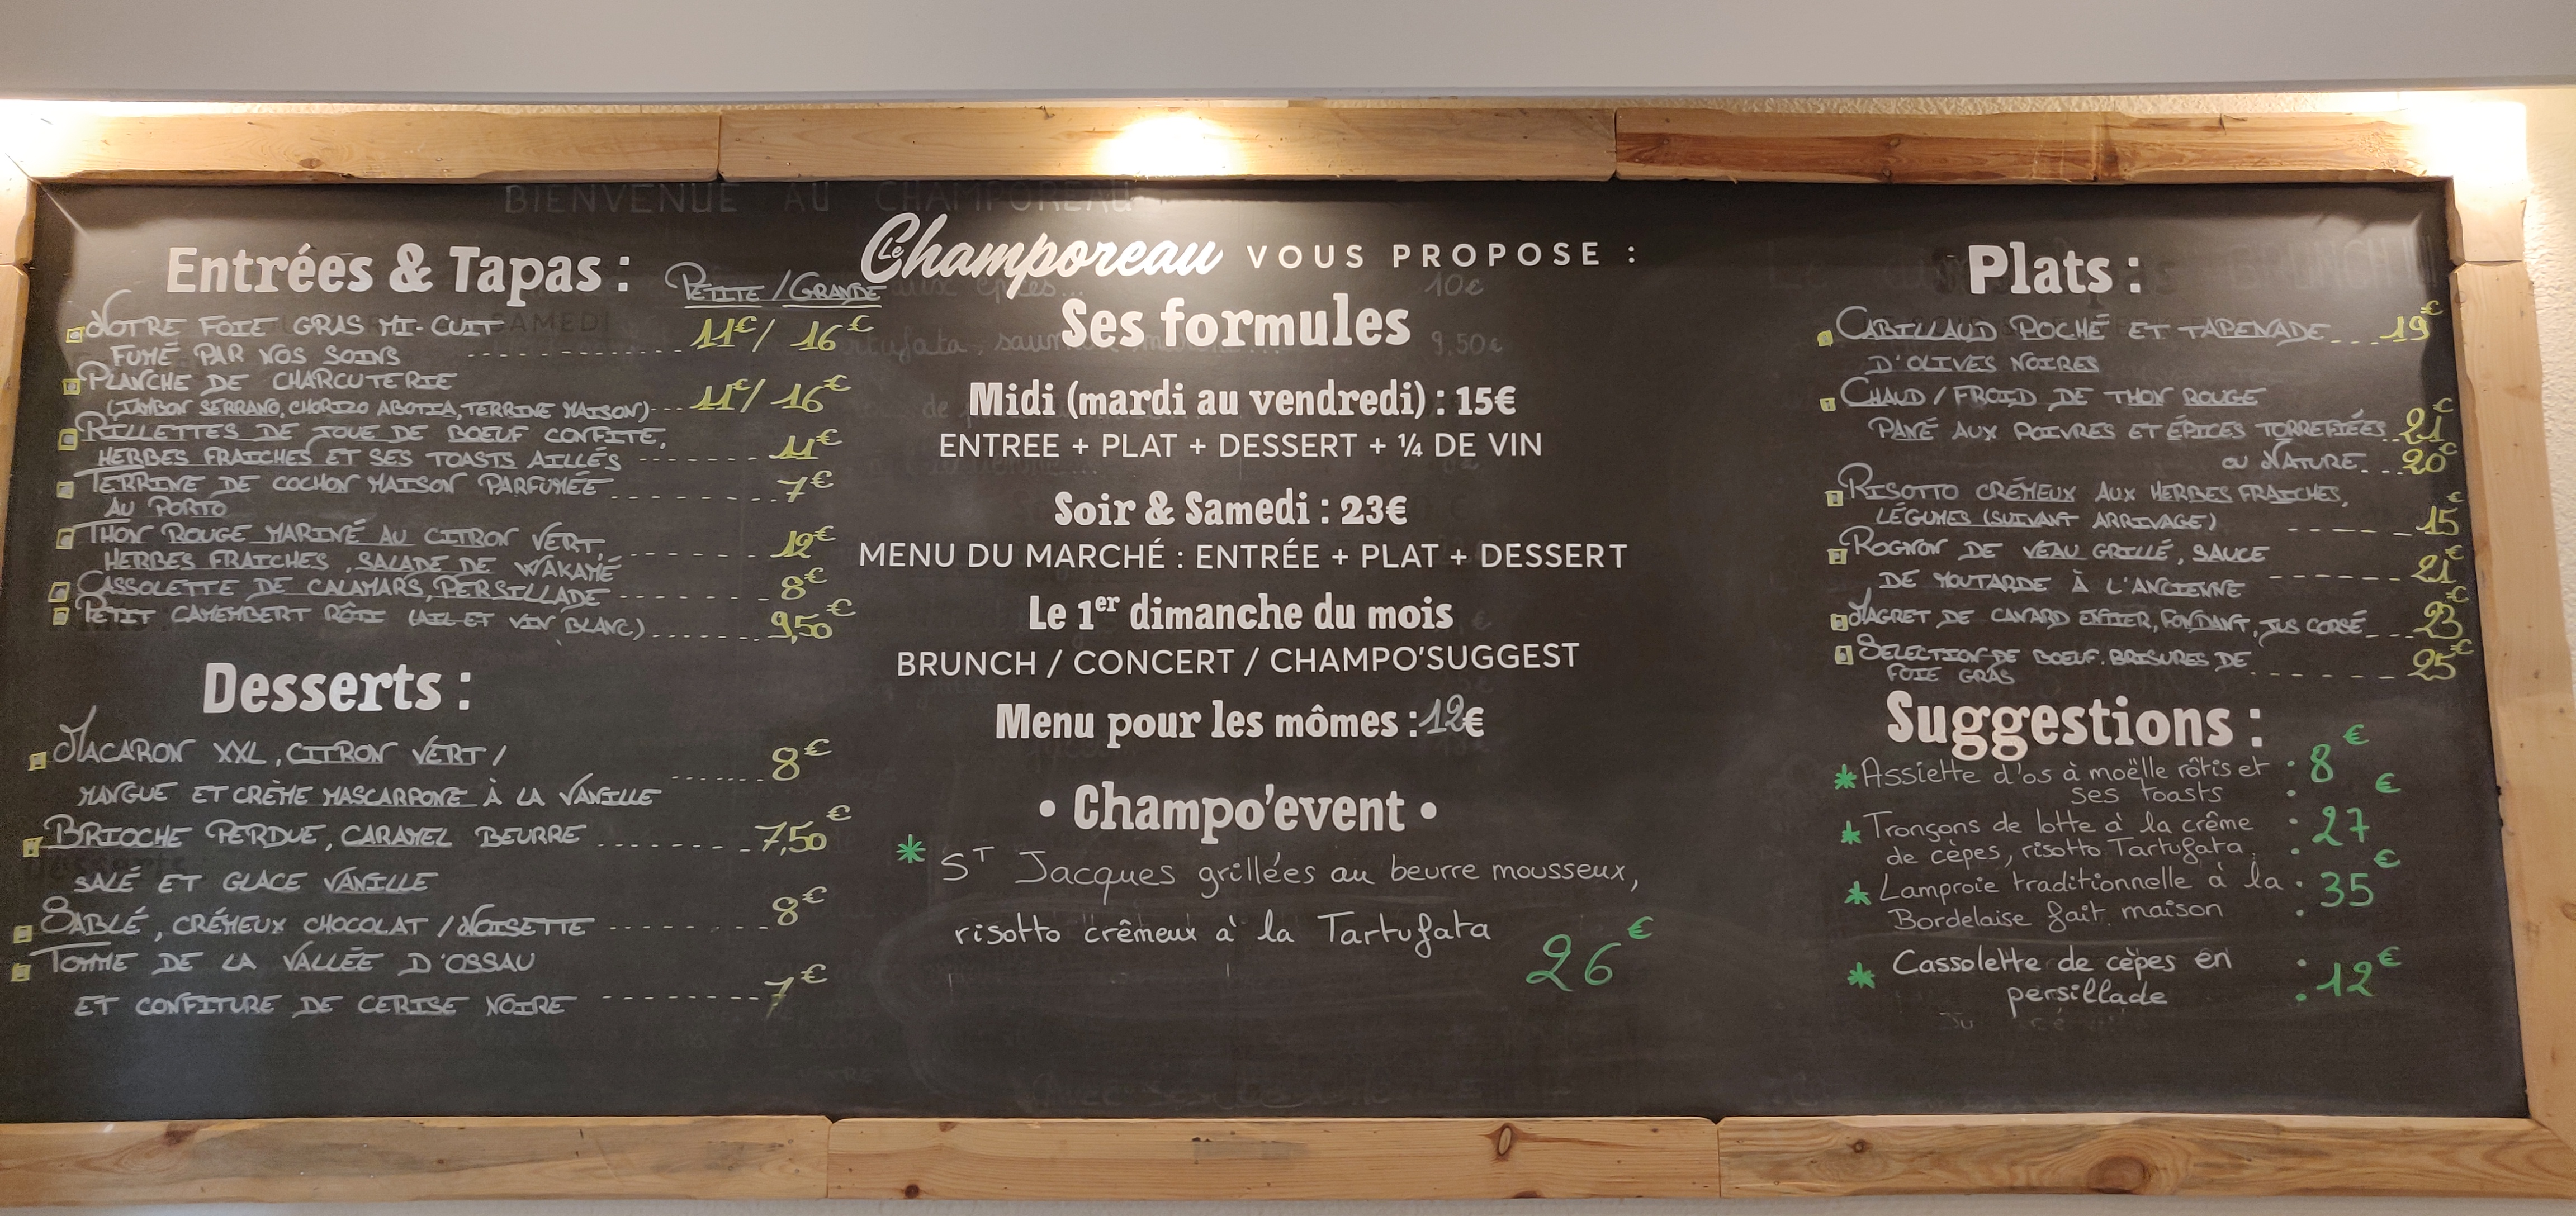 BIENVENUE AU CHAMPOREAU
Entrées & Tapas :
PETITE / GRANDE
NOTRE FOIE GRAS MI-CUIT
FUMÉ PAR NOS SOINS 11€ / 16€
PLANCHE DE CHARCUTERIE
(JAMBON SERRANO, CHORIZO ABOTIA, TERRINE MAISON) 11€ / 16€
RILLETTES DE JOUE DE BOEUF CONFITE,
HERBES FRAICHES ET SES TOASTS AILLÉS 11€
TERRINE DE COCHON MAISON PARFUMÉE 7€
AU PORTO
THON ROUGE MARINÉ AU CITRON VERT,
HERBES FRAICHES, SALADE DE WAKAMÉ 12€
CASSOLETTE DE CALAMARS, PERSILLADE 8€
PETIT CAMEMBERT RÔTI (AIL ET VIN BLANC) 9,50€
Desserts :
MACARON XXL, CITRON VERT / 8€
MANGUE ET CRÈME MASCARPONE À LA VANILLE
BRIOCHE PERDUE, CARAMEL BEURRE 7,50€
SALÉ ET GLACE VANILLE
SABLÉ, CRÉMEUX CHOCOLAT / NOISETTE 8€
TOMME DE LA VALLÉE D'OSSAU
ET CONFITURE DE CERISE NOIRE 7€
Le Champoreau VOUS PROPOSE :
Ses formules
Midi (mardi au vendredi) : 15€
ENTREE + PLAT + DESSERT + ¼ DE VIN
Soir & Samedi : 23€
MENU DU MARCHÉ : ENTRÉE + PLAT + DESSERT
Le 1er dimanche du mois
BRUNCH / CONCERT / CHAMPO'SUGGEST
Menu pour les mômes : 12€
• Champo'event •
* ST Jacques grillées au beurre mousseux,
risotto crêmeux à la Tartufata
26€
Plats :
CABILLAUD POCHÉ ET TAPENADE 19€
D'OLIVES NOIRES
CHAUD / FROID DE THON ROUGE
PANÉ AUX POIVRES ET ÉPICES TORREFIÉES 21€
OU NATURE 20€
RISOTTO CRÉMEUX AUX HERBES FRAICHES,
LÉGUMES (SUIVANT ARRIVAGE) 15€
ROGNON DE VEAU GRILLÉ, SAUCE
DE MOUTARDE À L'ANCIENNE 21€
MAGRET DE CANARD ENTIER, FONDANT, JUS CORSÉ 23€
SELECTION DE BOEUF. BRISURES DE 25€
FOIE GRAS
Suggestions :
* Assiette d'os à moëlle rôtis et : 8€
ses toasts
* Tronçons de lotte à la crême : 27€
de cèpes, risotto Tartufata
* Lamproie traditionnelle à la : 35€
Bordelaise fait maison
* Cassolette de cèpes en : 12€
persillade